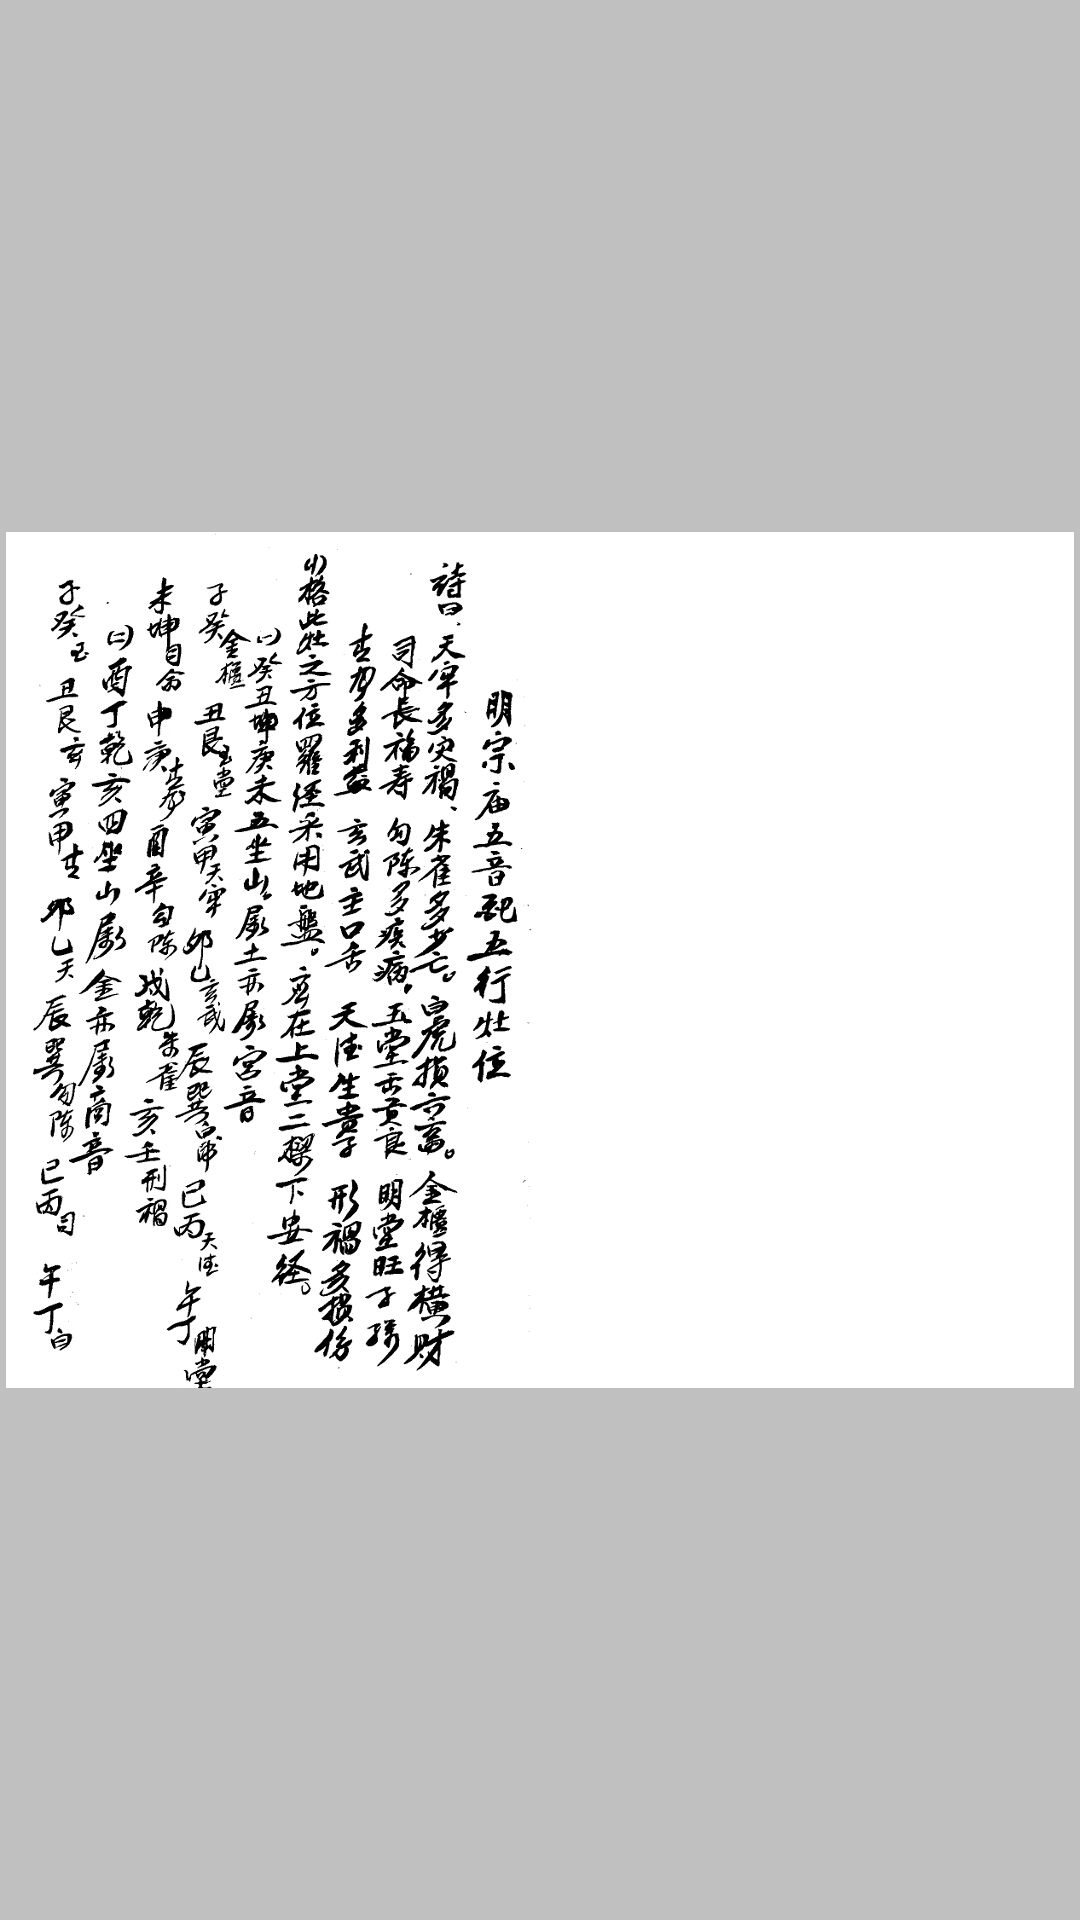 明宗庙五音配五行灶位
詩曰、天牢多灾禍、朱雀多少亡。白虎损六畜。金櫃得横财
司命長福寿 勾陈多疾病，玉堂出贤良 明堂旺子孫
吉多利益 玄武主口舌 天德生貴子 形禍多损伤
(1)格此灶之方位羅经采用地盤。应在上堂二樑下安经。
(一)癸丑坤庚未五坐山属土亦属宫音
子癸金櫃 丑艮玉堂 寅甲天牢 卯乙玄武 辰巽白虎 巳丙天德 午丁明堂
未坤司命 申庚 酉辛勾陈 戌乾朱雀 亥壬刑禍
(二)酉丁乾亥四坐山属金亦属商音
子癸玉 丑艮玄 寅甲吉 卯乙天 辰巽勾陈 巳丙司 午丁白